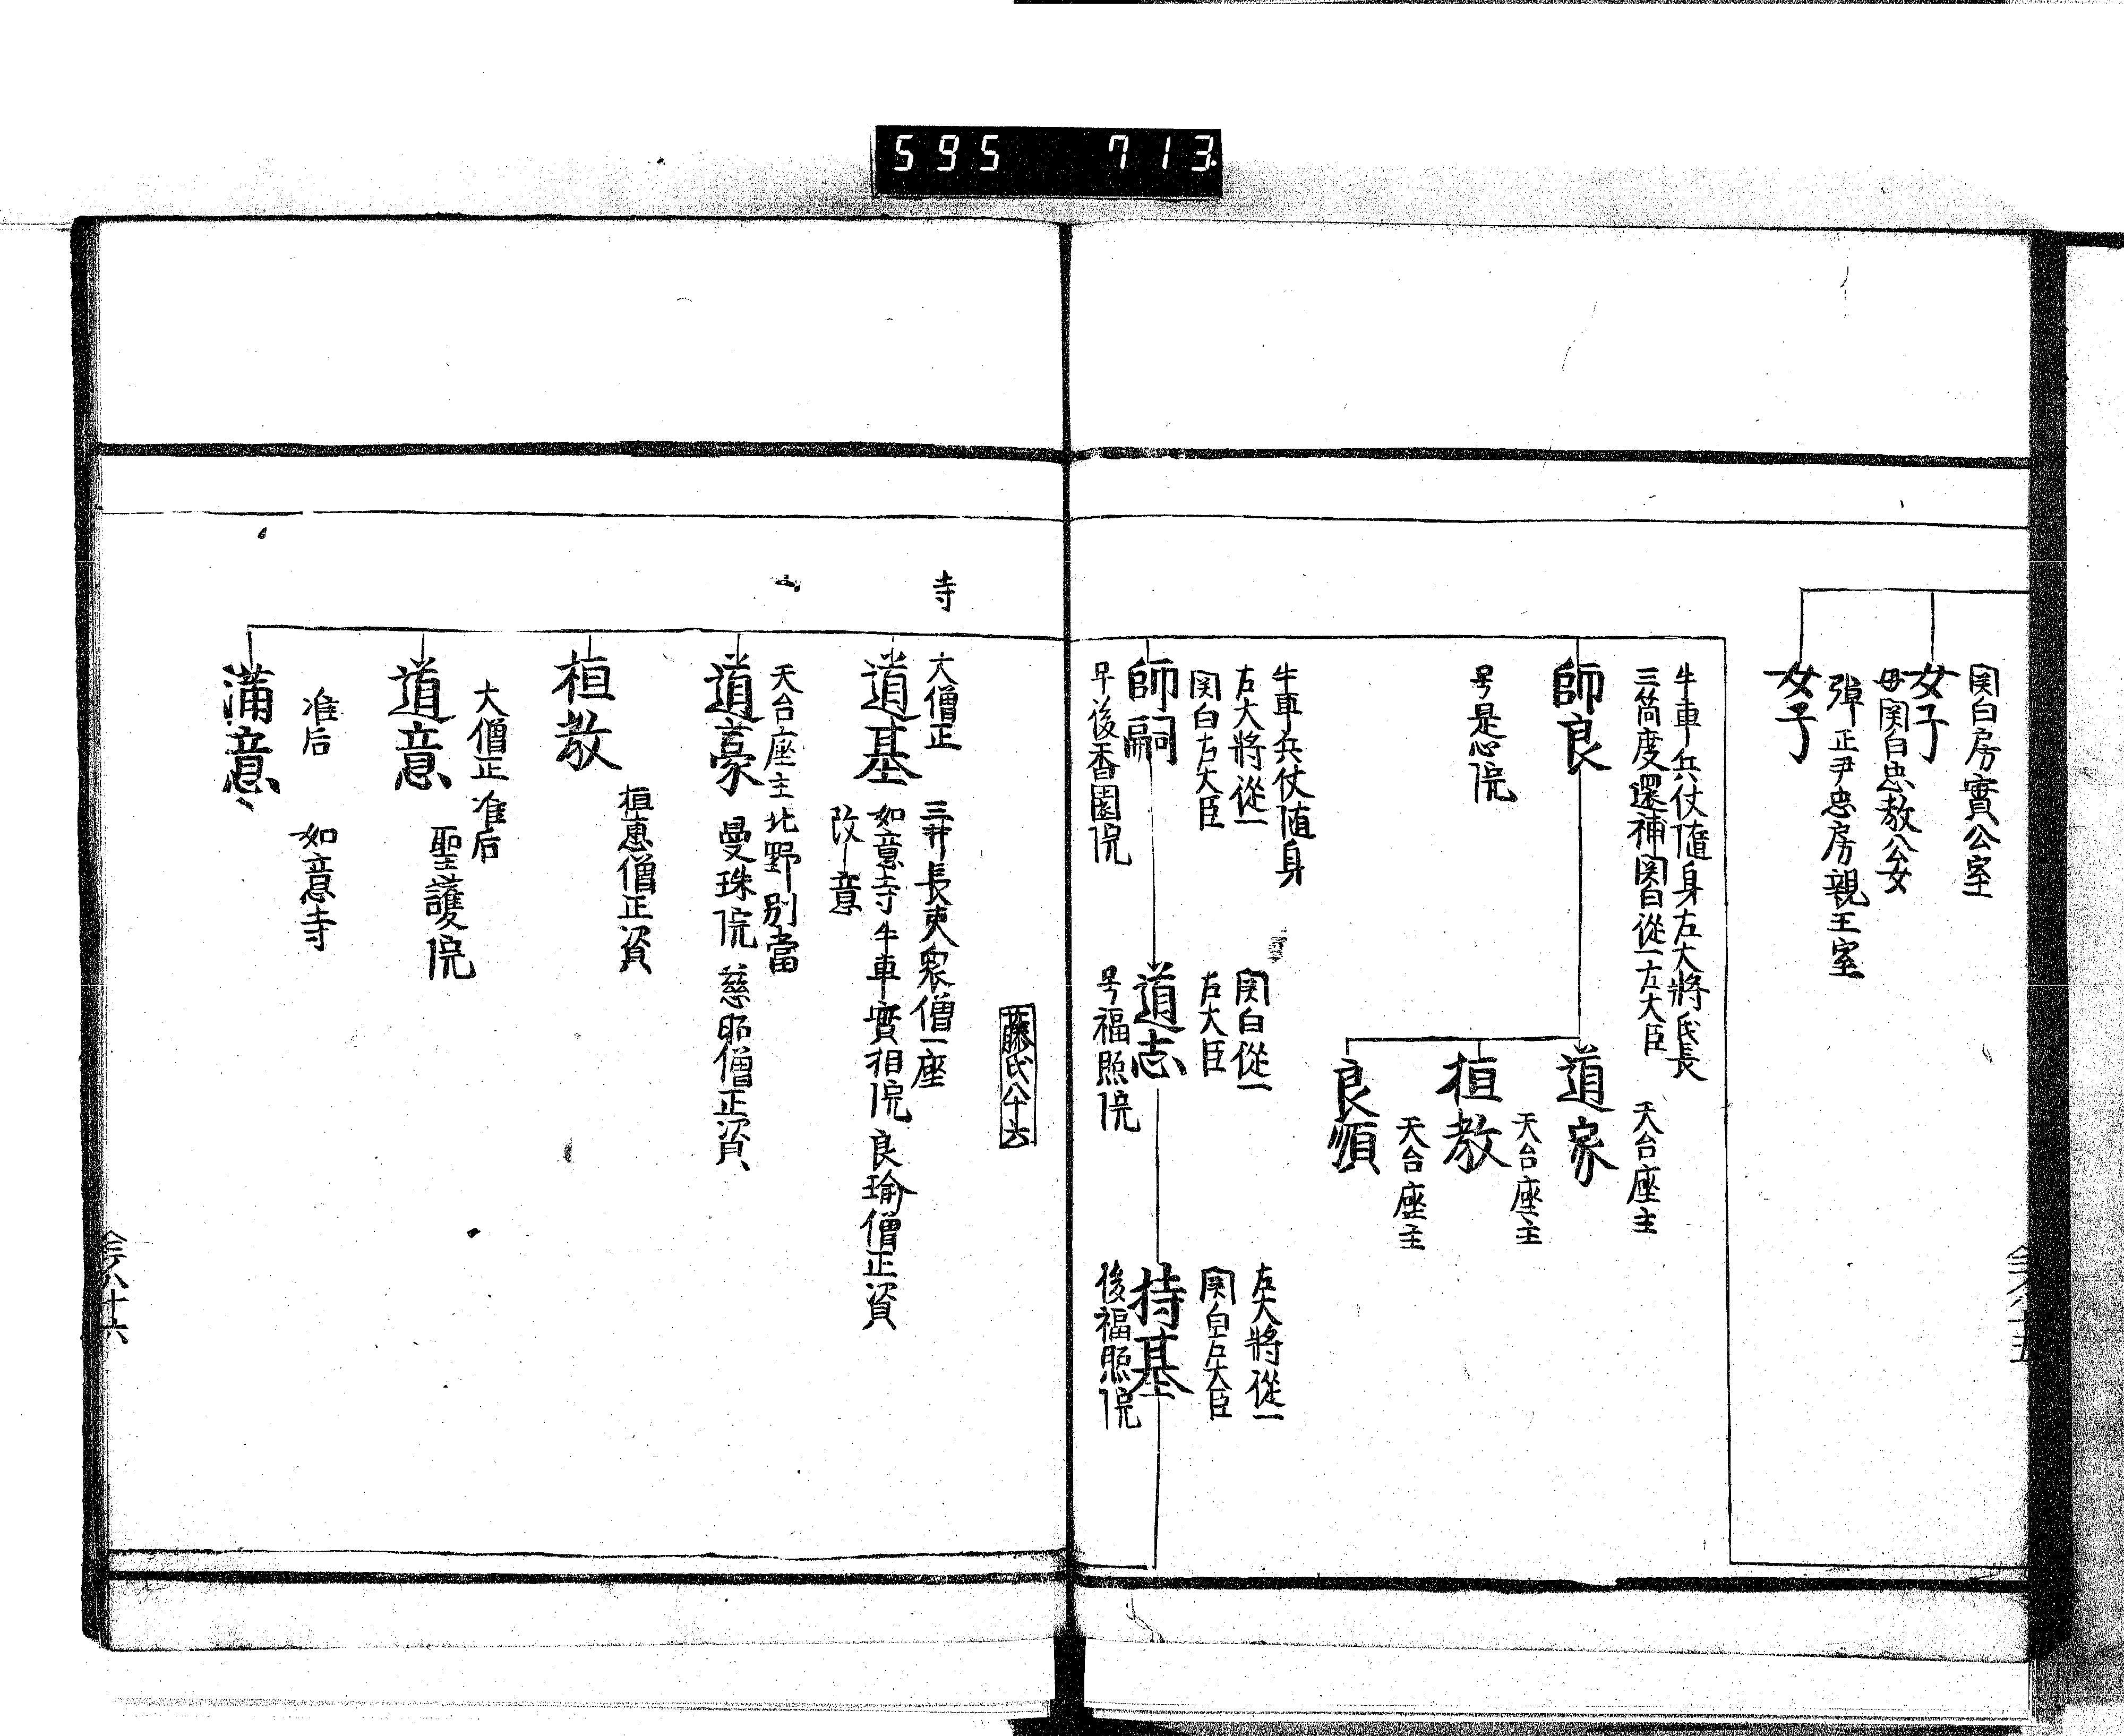 595 713
関白房實公室
女子
母関白忠教公女
弾正尹忠房親王室
女子
牛車兵仗随身左大將氏長
三箇度還補関白從一左大臣
師良
号是心院
天台座主
道家
天台座主
桓教
天台座主
良順
牛車兵仗随身
右大將從一
関白左大臣
師嗣
号後香園院
関白從一
右大臣
道志
号福照院
左大將從一
関白左大臣
持基
後福照院
藤氏八十六
寺
大僧正
三井長吏衆僧一座
道基
如意寺牛車實相院良瑜僧正資
改意
天台座主北野別當
道豪
曼珠院慈昭僧正資
桓惠僧正資
桓教
大僧正准后
道意
聖護院
准后
如意寺
滿意